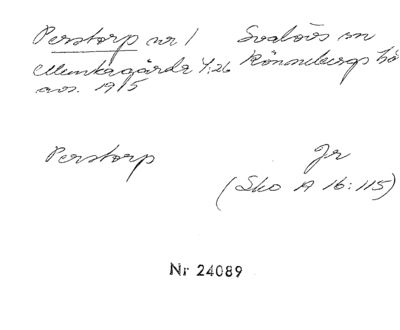 Perstorp nr 1 Svalövs sn
Munkagårda 4:26 Rönnebergs hd
avs. 1915
Perstorp Jr
(Sko A 16:115)
Nr 24089